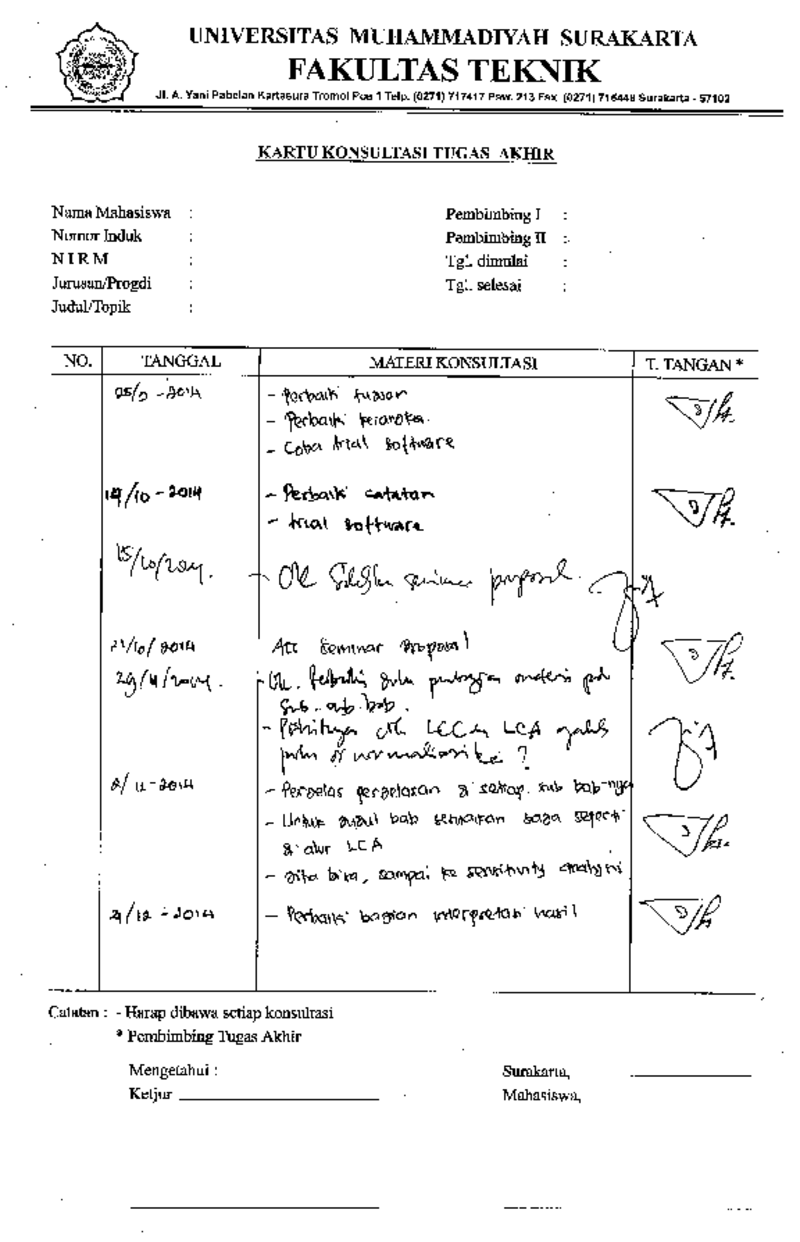 UNIVERSITAS MUHAMMADIYAH SURAKARTA
FAKULTAS TEKNIK
Jl. A. Yani Pabelan Kartasura Tromol Pos 1 Telp. (0271) 717417 Psw. 213 Fax (0271) 716448 Surakarta - 57102
KARTU KONSULTASI TUGAS AKHIR
Nama Mahasiswa :
Nomor Induk :
N I R M :
Jurusan/Progdi :
Judul/Topik :
Pembimbing I :
Pembimbing II :
Tgl. dimulai :
Tgl. selesai :
NO. TANGGAL MATERI KONSULTASI T. TANGAN *
- Perbaiki tujuan
- Perbaiki kerangka.
- Coba trial software
/10 - 2014 - Perbaiki catatan
- trial software
15/10/2014. - Ok Silahkan seminar proposal.
/10/2014 Acc Seminar Proposal
29/11/2014. - Ok.
Sub-sub bab.
- LCC LCA
normalisasi ?
- Perjelas penjelasan di setiap sub bab-nya
- Untuk judul bab sesuaikan saja seperti
di alur LCA
- jika bisa, sampai ke sensitivity analysis
/12 - 2014 - Perbaiki bagian interpretasi hasil
Catatan : - Harap dibawa setiap konsultasi
* Pembimbing Tugas Akhir
Mengetahui :
Ketjur
Surakarta,
Mahasiswa,